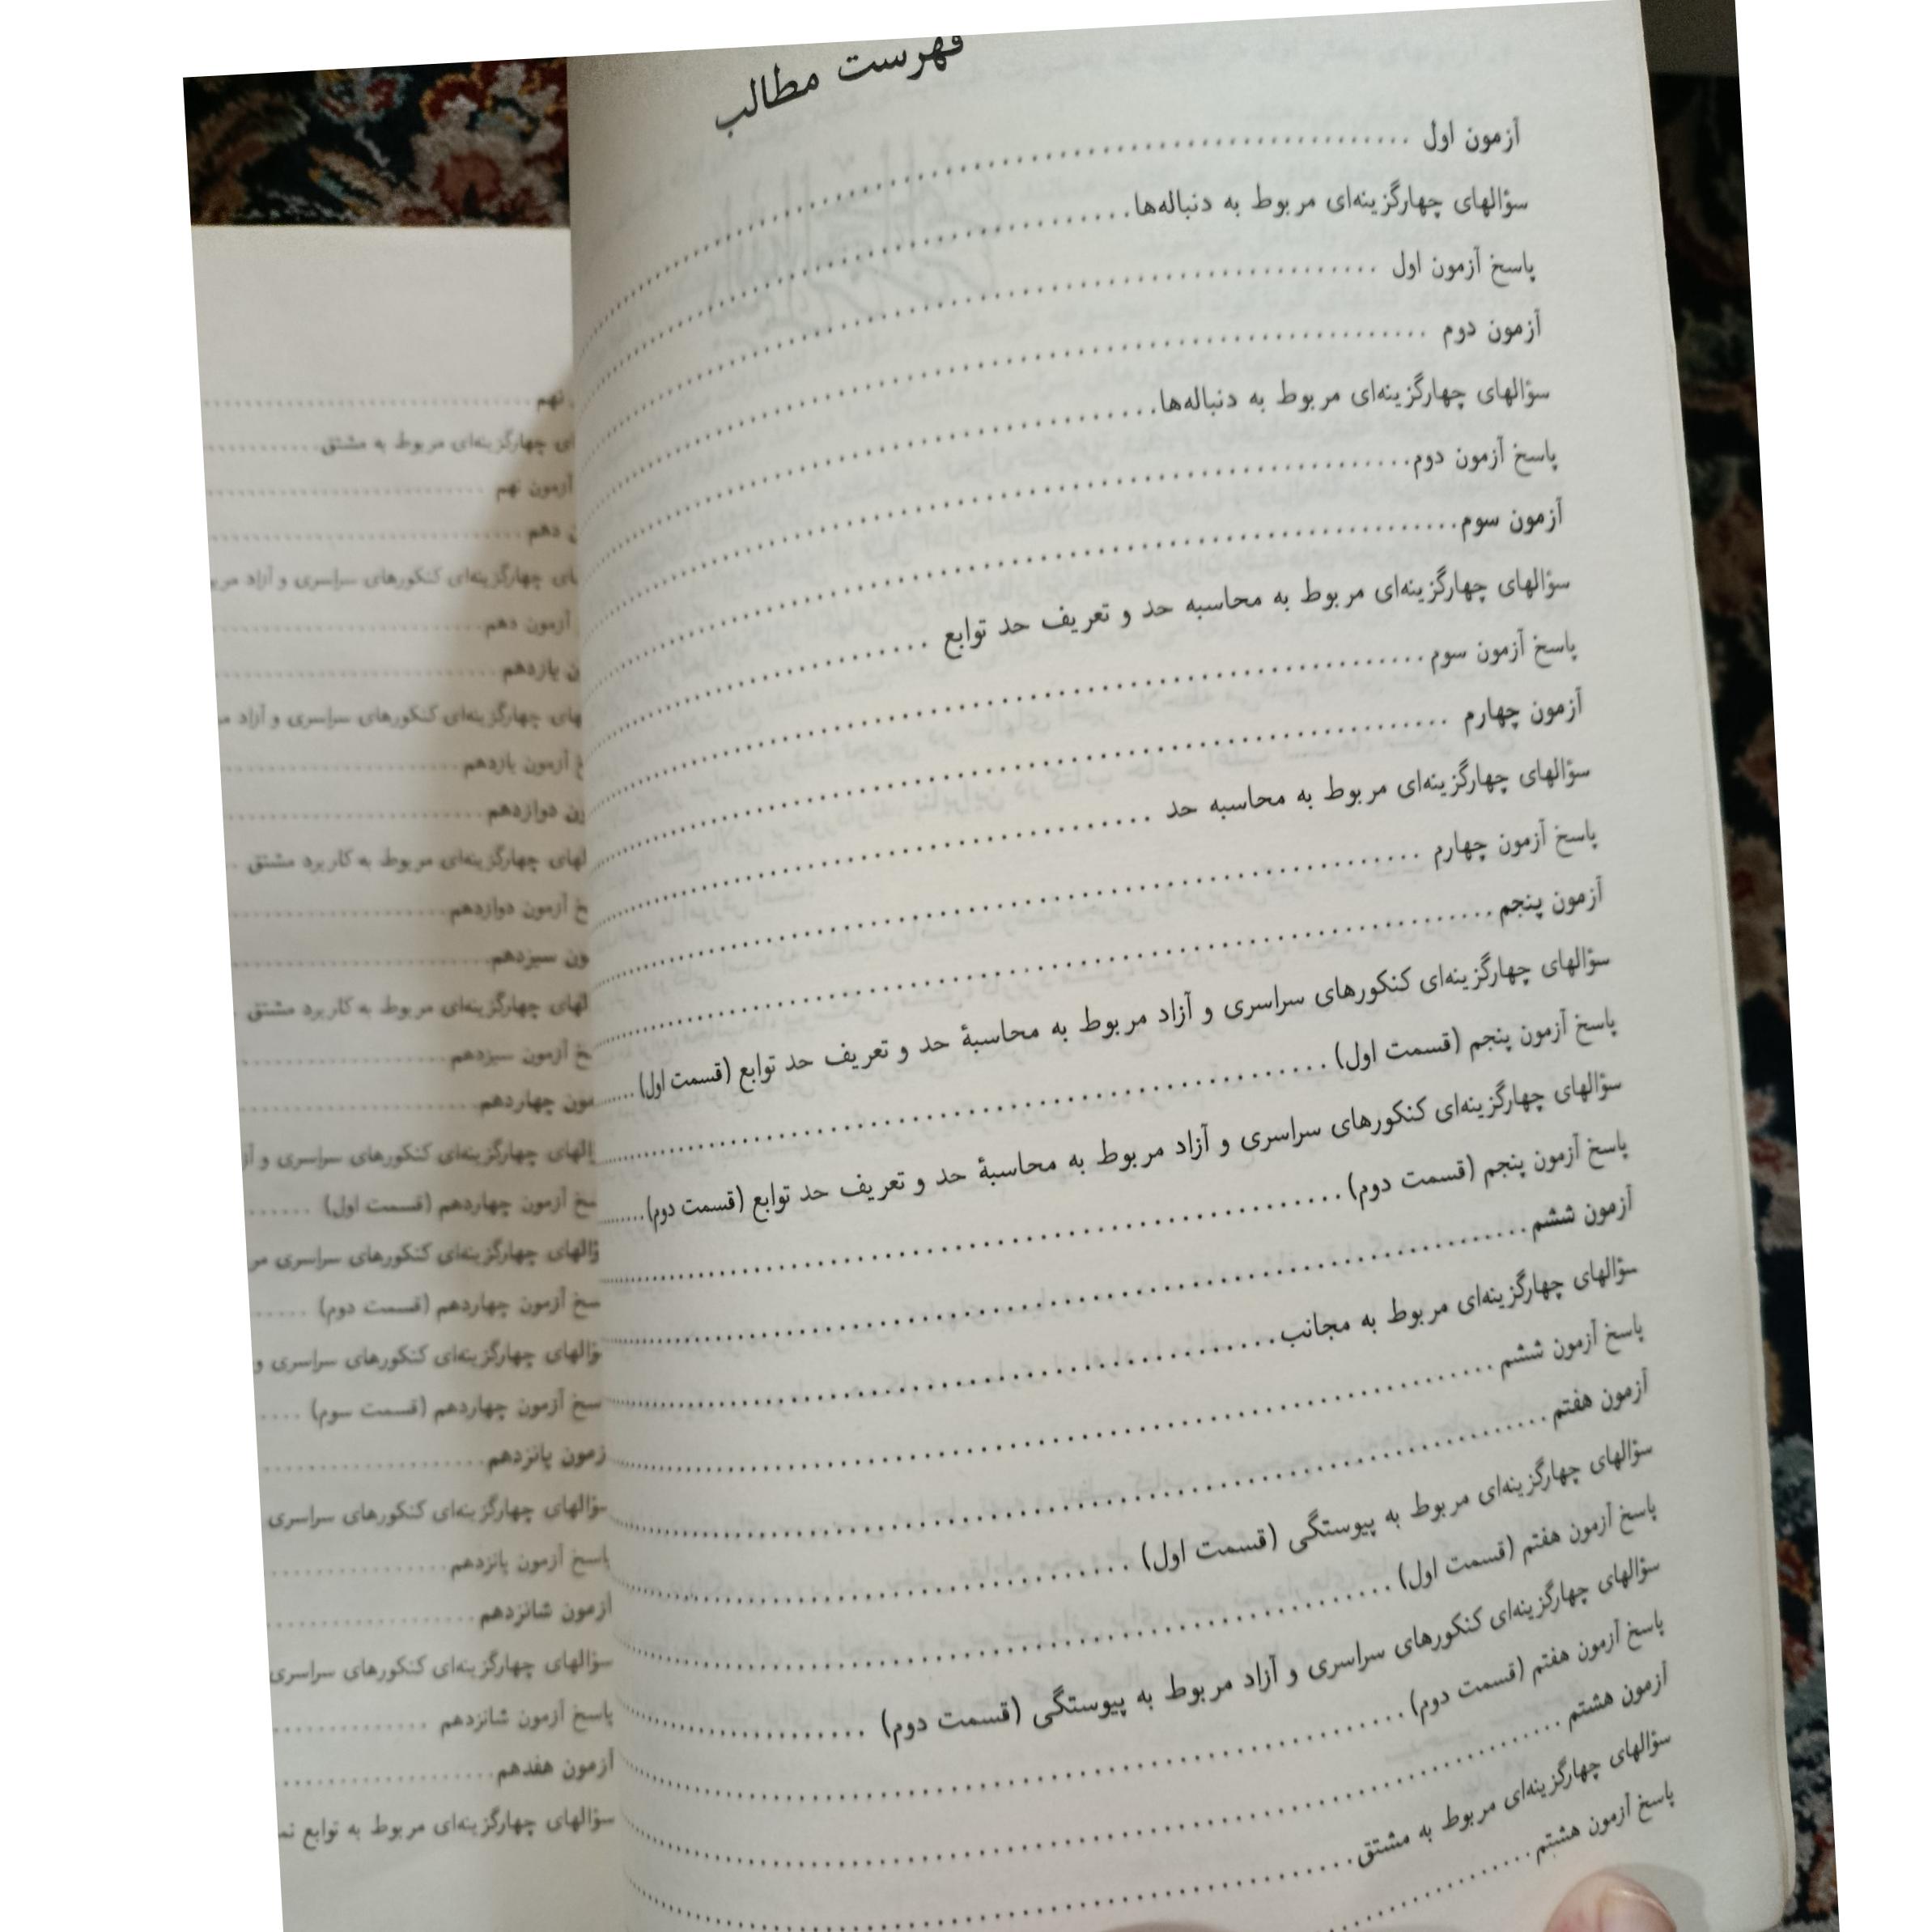 فهرست مطالب
آزمون اول
سؤالهای چهارگزینه‌ای مربوط به دنباله‌ها
پاسخ آزمون اول
آزمون دوم
سؤالهای چهارگزینه‌ای مربوط به دنباله‌ها
پاسخ آزمون دوم
آزمون سوم
سؤالهای چهارگزینه‌ای مربوط به محاسبه حد و تعریف حد توابع
پاسخ آزمون سوم
آزمون چهارم
سؤالهای چهارگزینه‌ای مربوط به محاسبه حد
پاسخ آزمون چهارم
آزمون پنجم
سؤالهای چهارگزینه‌ای کنکورهای سراسری و آزاد مربوط به محاسبهٔ حد و تعریف حد توابع (قسمت اول)
پاسخ آزمون پنجم (قسمت اول)
سؤالهای چهارگزینه‌ای کنکورهای سراسری و آزاد مربوط به محاسبهٔ حد و تعریف حد توابع (قسمت دوم)
پاسخ آزمون پنجم (قسمت دوم)
آزمون ششم
سؤالهای چهارگزینه‌ای مربوط به مجانب
پاسخ آزمون ششم
آزمون هفتم
سؤالهای چهارگزینه‌ای مربوط به پیوستگی (قسمت اول)
پاسخ آزمون هفتم (قسمت اول)
سؤالهای چهارگزینه‌ای کنکورهای سراسری و آزاد مربوط به پیوستگی (قسمت دوم)
پاسخ آزمون هفتم (قسمت دوم)
آزمون هشتم
سؤالهای چهارگزینه‌ای مربوط به مشتق
پاسخ آزمون هشتم
نهم
چهارگزینه‌ای مربوط به مشتق
آزمون نهم
دهم
چهارگزینه‌ای کنکورهای سراسری و آزاد
آزمون دهم
یازدهم
چهارگزینه‌ای کنکورهای سراسری و آزاد
آزمون یازدهم
دوازدهم
چهارگزینه‌ای مربوط به کاربرد مشتق
آزمون دوازدهم
سیزدهم
چهارگزینه‌ای مربوط به کاربرد مشتق
آزمون سیزدهم
چهاردهم
چهارگزینه‌ای کنکورهای سراسری و
آزمون چهاردهم (قسمت اول)
چهارگزینه‌ای کنکورهای سراسری
آزمون چهاردهم (قسمت دوم)
چهارگزینه‌ای کنکورهای سراسری و
آزمون چهاردهم (قسمت سوم)
پانزدهم
سؤالهای چهارگزینه‌ای کنکورهای سراسری
پاسخ آزمون پانزدهم
آزمون شانزدهم
سؤالهای چهارگزینه‌ای کنکورهای سراسری
پاسخ آزمون شانزدهم
آزمون هفدهم
سؤالهای چهارگزینه‌ای مربوط به توابع